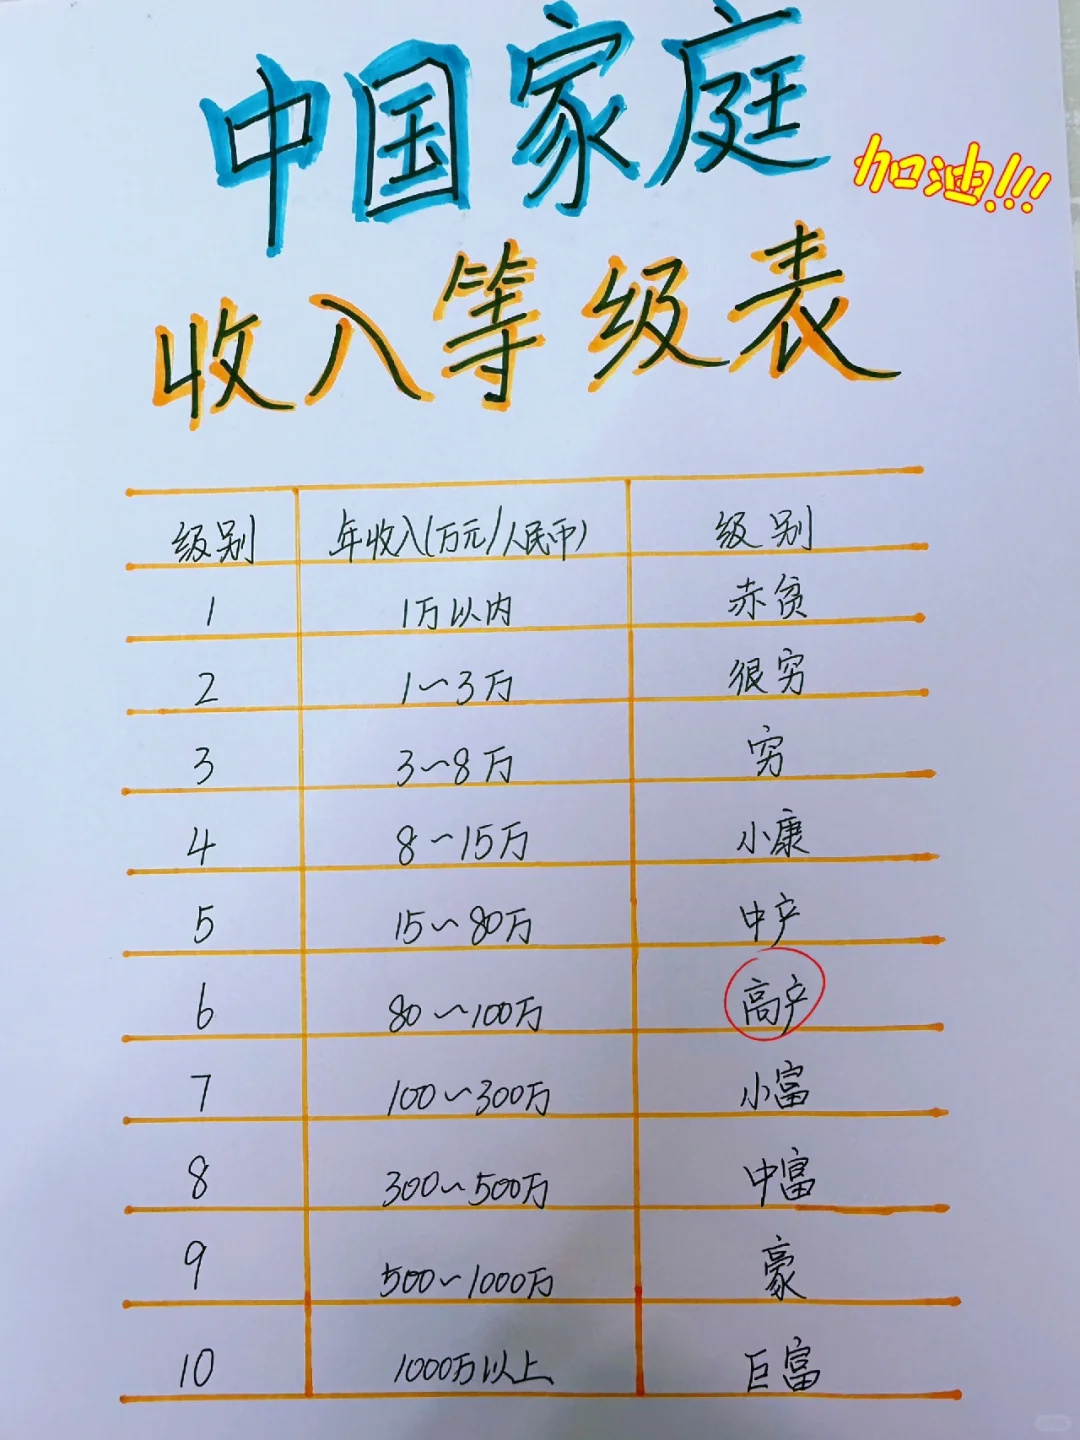 中国家庭
加油!!!
收入等级表
级别 年收入(万元/人民币) 级别
1 1万以内 赤贫
2 1~3万 很穷
3 3~8万 穷
4 8~15万 小康
5 15~80万 中产
6 80~100万 高产
7 100~300万 小富
8 300~500万 中富
9 500~1000万 豪
10 1000万以上 巨富